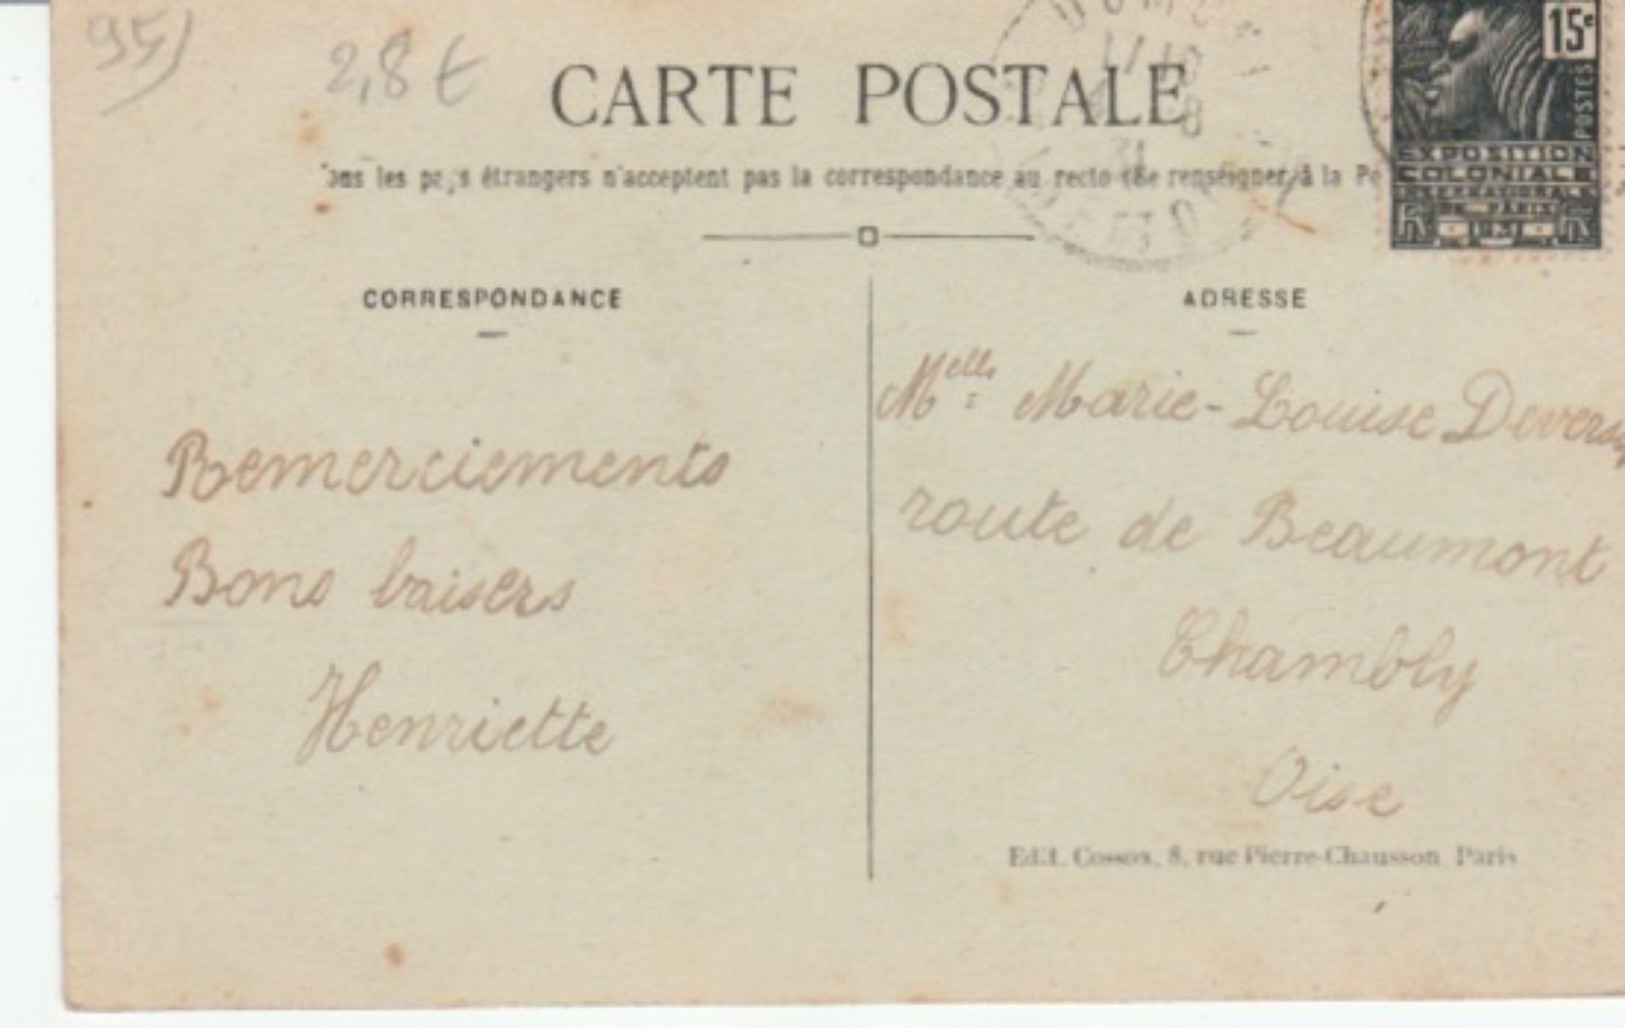 95)
2,8 €
CARTE POSTALE
les pays étrangers n'acceptent pas la correspondance au recto (Se renseigner à la
CORRESPONDANCE
ADRESSE
15c
POSTES
EXPOSITION
COLONIALE
INTERNATIONALE
DE PARIS
1931
Melle Marie-Louise
route de Beaumont
Chambly
Oise
Remerciements
Bons baisers
Henriette
Edit. Cosson, 8, rue Pierre-Chausson, Paris